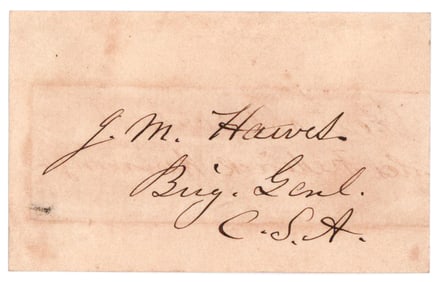 J. M. Hawes
Brig. Genl.
C.S.A.